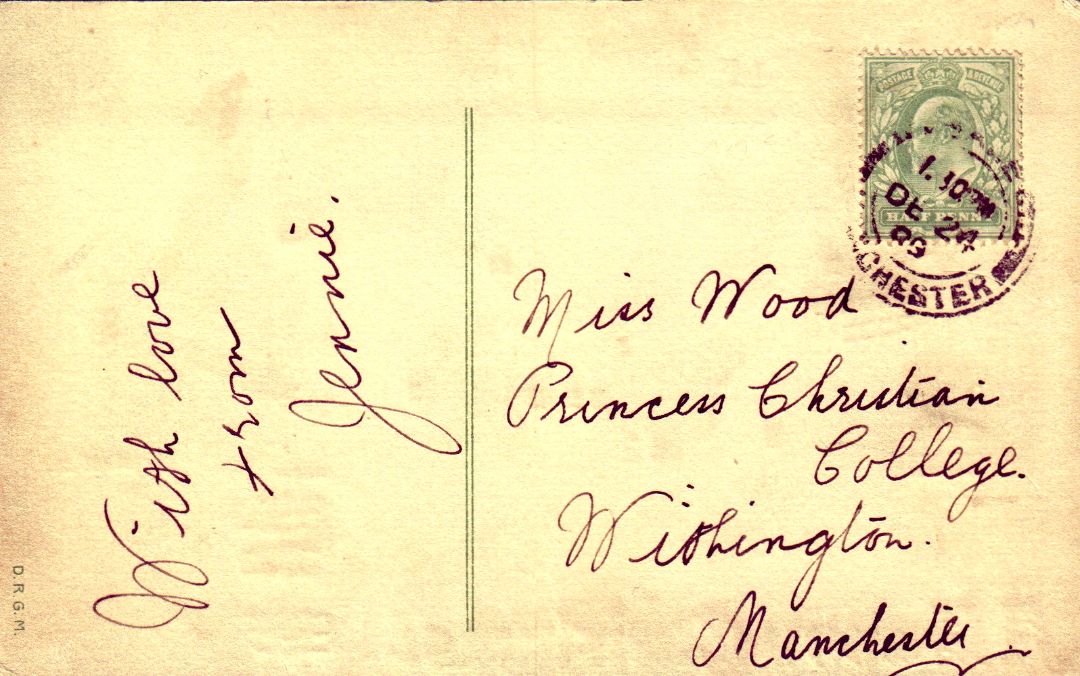 With love
from
Jennie.
D.R.G.M.
POSTAGE & REVENUE
HALF PENNY
DE 24
09
CHESTER
Miss Wood
Princess Christian
College.
Withington.
Manchester